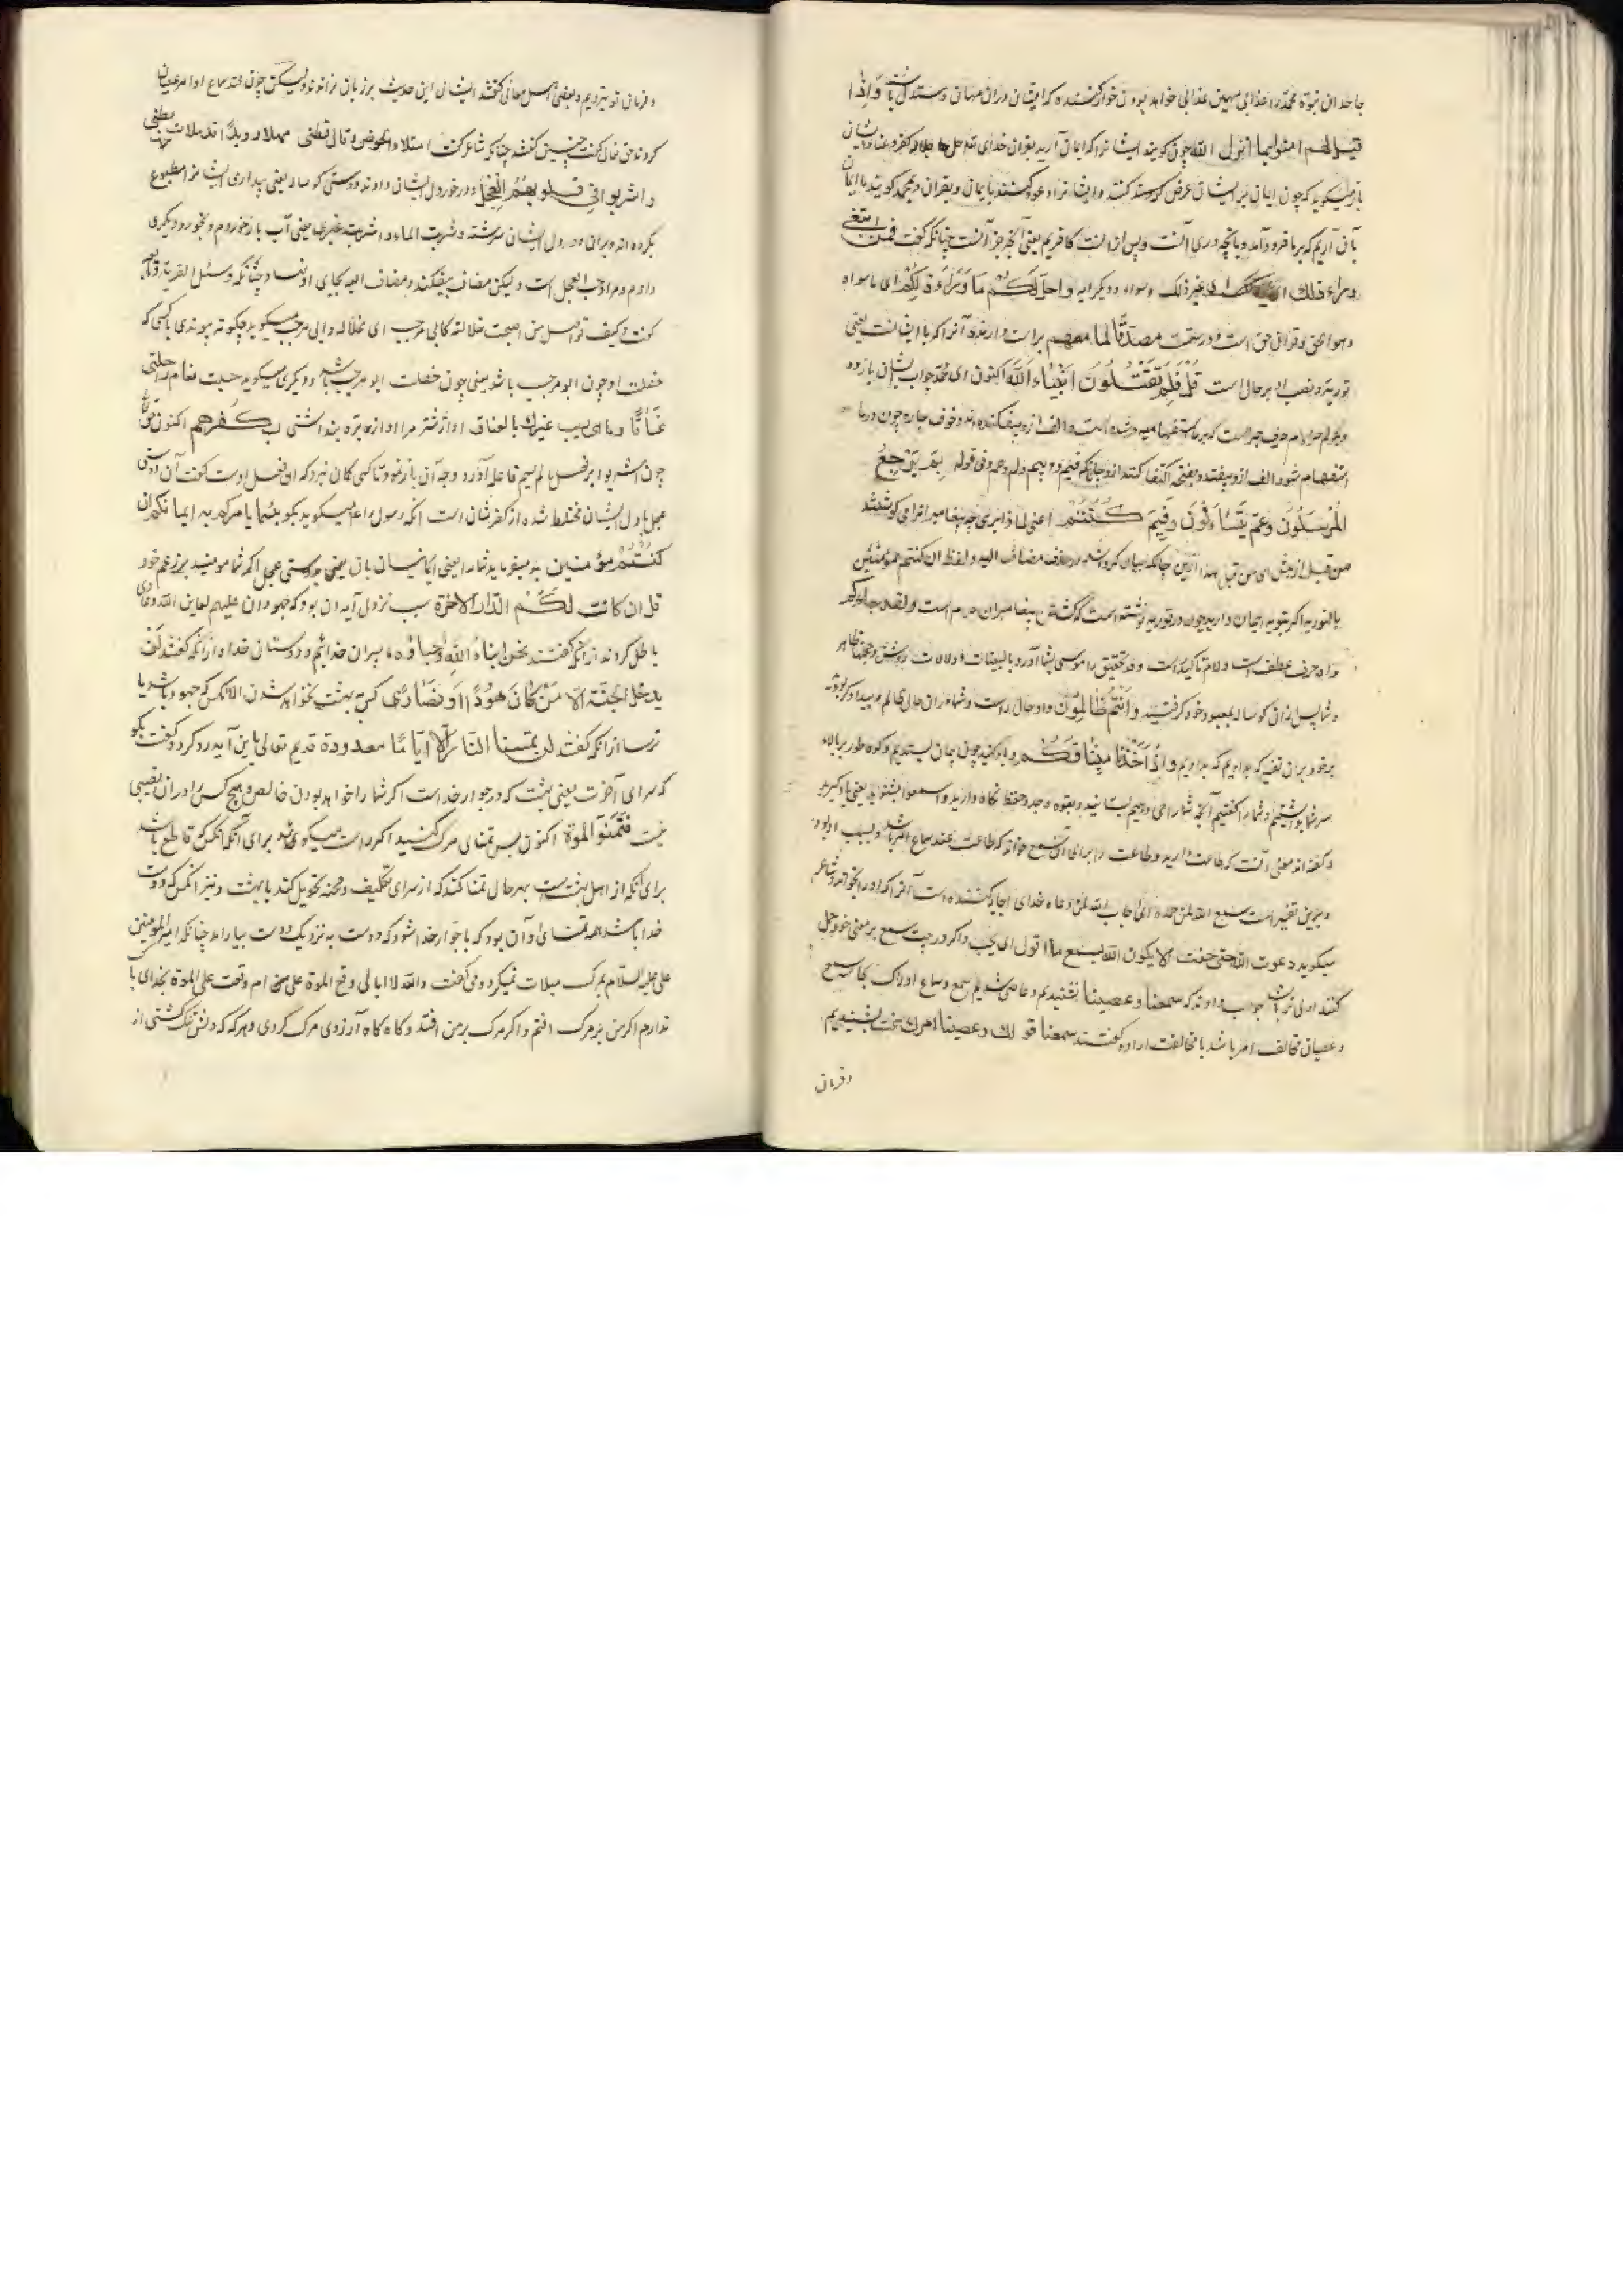 جاحدان نبوة محمد را عذابی مهین عذابی خواهد بودن خوار کننده که ایشان دران مهان و مستذل باشند وَاِذا
قیل لهم امنوا بما انزل الله چون کویند ایشانرا که ایمان آرید بقران خدای تعالی
باز میکوید که چون ایمان بر ایشان عرض کنند و ایشانرا دعوة کنند بایمان و بقران و بمحمد کویند ما ایمان
بآن آریم که بر ما فرود آمد و بانچه ورای آنست کافریم یعنی آنچه جز آنست چنانکه کفت فمن ابتغی
وراء ذلك ای غیر ذلک و سواه و دیکر آیه واحلّ لکم مَا وَرَاءَ ذلِکُم ای ما سواه
وهو الحق و قران حق است و درست مصدّقًا لما معهم براست دارنده آنرا که با ایشانست یعنی
توریة و نصب او بر حال است قُل فَلِمَ تَقتُلُونَ انبیاءَ الله اکنون ای محمد جواب ایشان باز ده
استفهام شود الف ازو بیفتد و بفتحه اکتفا کنند ازو چنانکه فیم و بم و لم و عم و فی قوله بِمَ یَرجِعُ
المُرسَلُونَ وعَمَّ یَتَساءَلُونَ وفِیمَ کُنتُم
من قبل از پیش ای من قبل هذا ازین چنانکه بیان کرده شد در حذف مضاف الیه و لفظ ان کنتم مؤمنین
بالتوریه اکر بتوریه ایمان دارید چون در توریه نوشته است که کشتن پیغامبران حرام است ولقد جاءکم
واو حرف عطف است و لام تاکید است و قد تحقیق را موسی بشما آورد بالبینات و دلالات روشن و حجتها ظاهر
و شما پس ازان کوساله بمعبود خود کرفتید وَاَنتُم ظَالِمُونَ واو حال راست و شما دران حال ظالم و بیدادکر بودید
بر خود بران تفسیر که بدادیم وَاِذ اَخَذنَا مِیثَاقَکُم و یاد کنید چون پیمان بستدیم و کوه طور بر بالاء
سر شما بداشتیم و شما را کفتیم آنچه شما را می دهیم بستانید و بقوه و جد و حفظ نکاه دارید واسمعوا بشنوید یعنی یاد کیرید
و کفته اند معنی آنست که طاعت دارید و طاعت را برای آن سمع خواند که طاعت عند سماع امر باشد و بسبب او بود
و برین تفسیر است سمع الله لمن حمده ای اجاب الله لمن دعاه خدای اجابه کننده است آنرا که او را بخواند و شاعر
میکوید دعوت الله حتی خفت الا یکون الله یسمع ما اقول ای یجیب و اکر درجت سمع بر معنی خود حمل
کنند اولی تر باشد جواب دادند که سمعنا وعصینا بشنیدیم و عاصی شدیم سمع و سماع ادراک بحاسه سمع
و عصیان مخالفت امر باشد یا مخالفت اراده کفتند سمعنا قولك وعصینا امرك سخنت بشنیدیم
و فرمان
و فرمان تو نبردیم و بعضی اهل معانی کفتند ایشان این حدیث بر زبان نراندند ولیکن چون عند سماع اوامر عصیان
کردند حق تعالی کفت چنین کفتند چنانکه شاعر کفت امتلاء الحوض وقال قطنی مهلا رویدًا قد ملات بطنی
واشربوا فی قلوبهُمُ العِجلَ و در خورد دل ایشان دادند دوستی کوساله یعنی پنداری ایشانرا مطبوع
بکرده اند بران و در دل ایشان سرشته و شربت الماء و اشربت غیری یعنی آب باز خوردم و بخورد دیکری
دادم و مراد حب العجل است ولیکن مضاف بیفکند و مضاف الیه بجای او نهاد چنانکه وسئل القریة
کفت و کیف تواصل من اصبحت خلالته کابی مرحب ای کخلالة ابی مرحب میکوید چکونه پیوندی با کسی که
خصلت او چون ابو مرحب باشد یعنی چون خصلت ابو مرحب باشد و دیکری میکوید حسبت بغام راحلتی
عَناقًا وما هی ویب غیرك بالعناق آواز شتر مرا آواز بره پنداشتی بکُفرِهِم اکنون
چون اشربوا بر فعل ما لم یسم فاعله آورد وجه آن باز نمود تا کسی کمان نبرد که آن فعل اوست کفت آن دوستی
عجل با دل ایشان مختلط شده از کفر شان است آنکه رسول را میکوید بکو بئسما یامرکم به ایمانکم ان
کُنتُم مؤمنین بد میفرماید شما را یعنی ایمانتان بآن یعنی دوستی عجل اکر شما مؤمنید بر زعم خود
قل ان کانت لَکُم الدّارُ الاخرة سبب نزول آیه آن بود که جهودان علیهم لعاین الله دعاوی
باطل کردند ازانکه کفتند نحن ابناءُ الله واحباؤه ما پسران خدائیم و دوستان خدا و ازانکه کفتند لَن
یدخل الجنّة الّا مَن کانَ هُودًا اَو نَصَاری کس به بهشت نخواهد شدن الا آنکس که جهود باشد یا
ترسا ازانکه کفتند لن تمسنا النار اِلّا ایّامًا معدودة قدیم تعالی باین آیه رد کرد و کفت بکو
که سرای آخرت یعنی بهشت که در جوار خداست اکر شما را خواهد بودن خالص و هیچ کس را دران نصیبی
نیست فتمنّوا الموة اکنون پس تمنای مرک کنید اکر راست میکوئید برای آنکه آنکس که قاطع باشد
برای آنکه از اهل بهشت است بهر حال تمنا کند که از سرای تکلیف و محنه تحویل کند با بهشت و نیز آنکس که دوست
خدا باشد همه تمنای او آن بود که با جوار خدا شود که دوست به نزدیک دوست بیاراید چنانکه امیر المؤمنین
علی علیه السلام بمرک مبالات نمیکرد و می کفت والله لا ابالی وقع الموة علیّ ام وقعت علی الموة بخدای باک
ندارم اکر من بر مرک افتم و اکر مرک بر من افتد و کاه کاه آرزوی مرک کردی و هر که که دلش تنک کشتی از